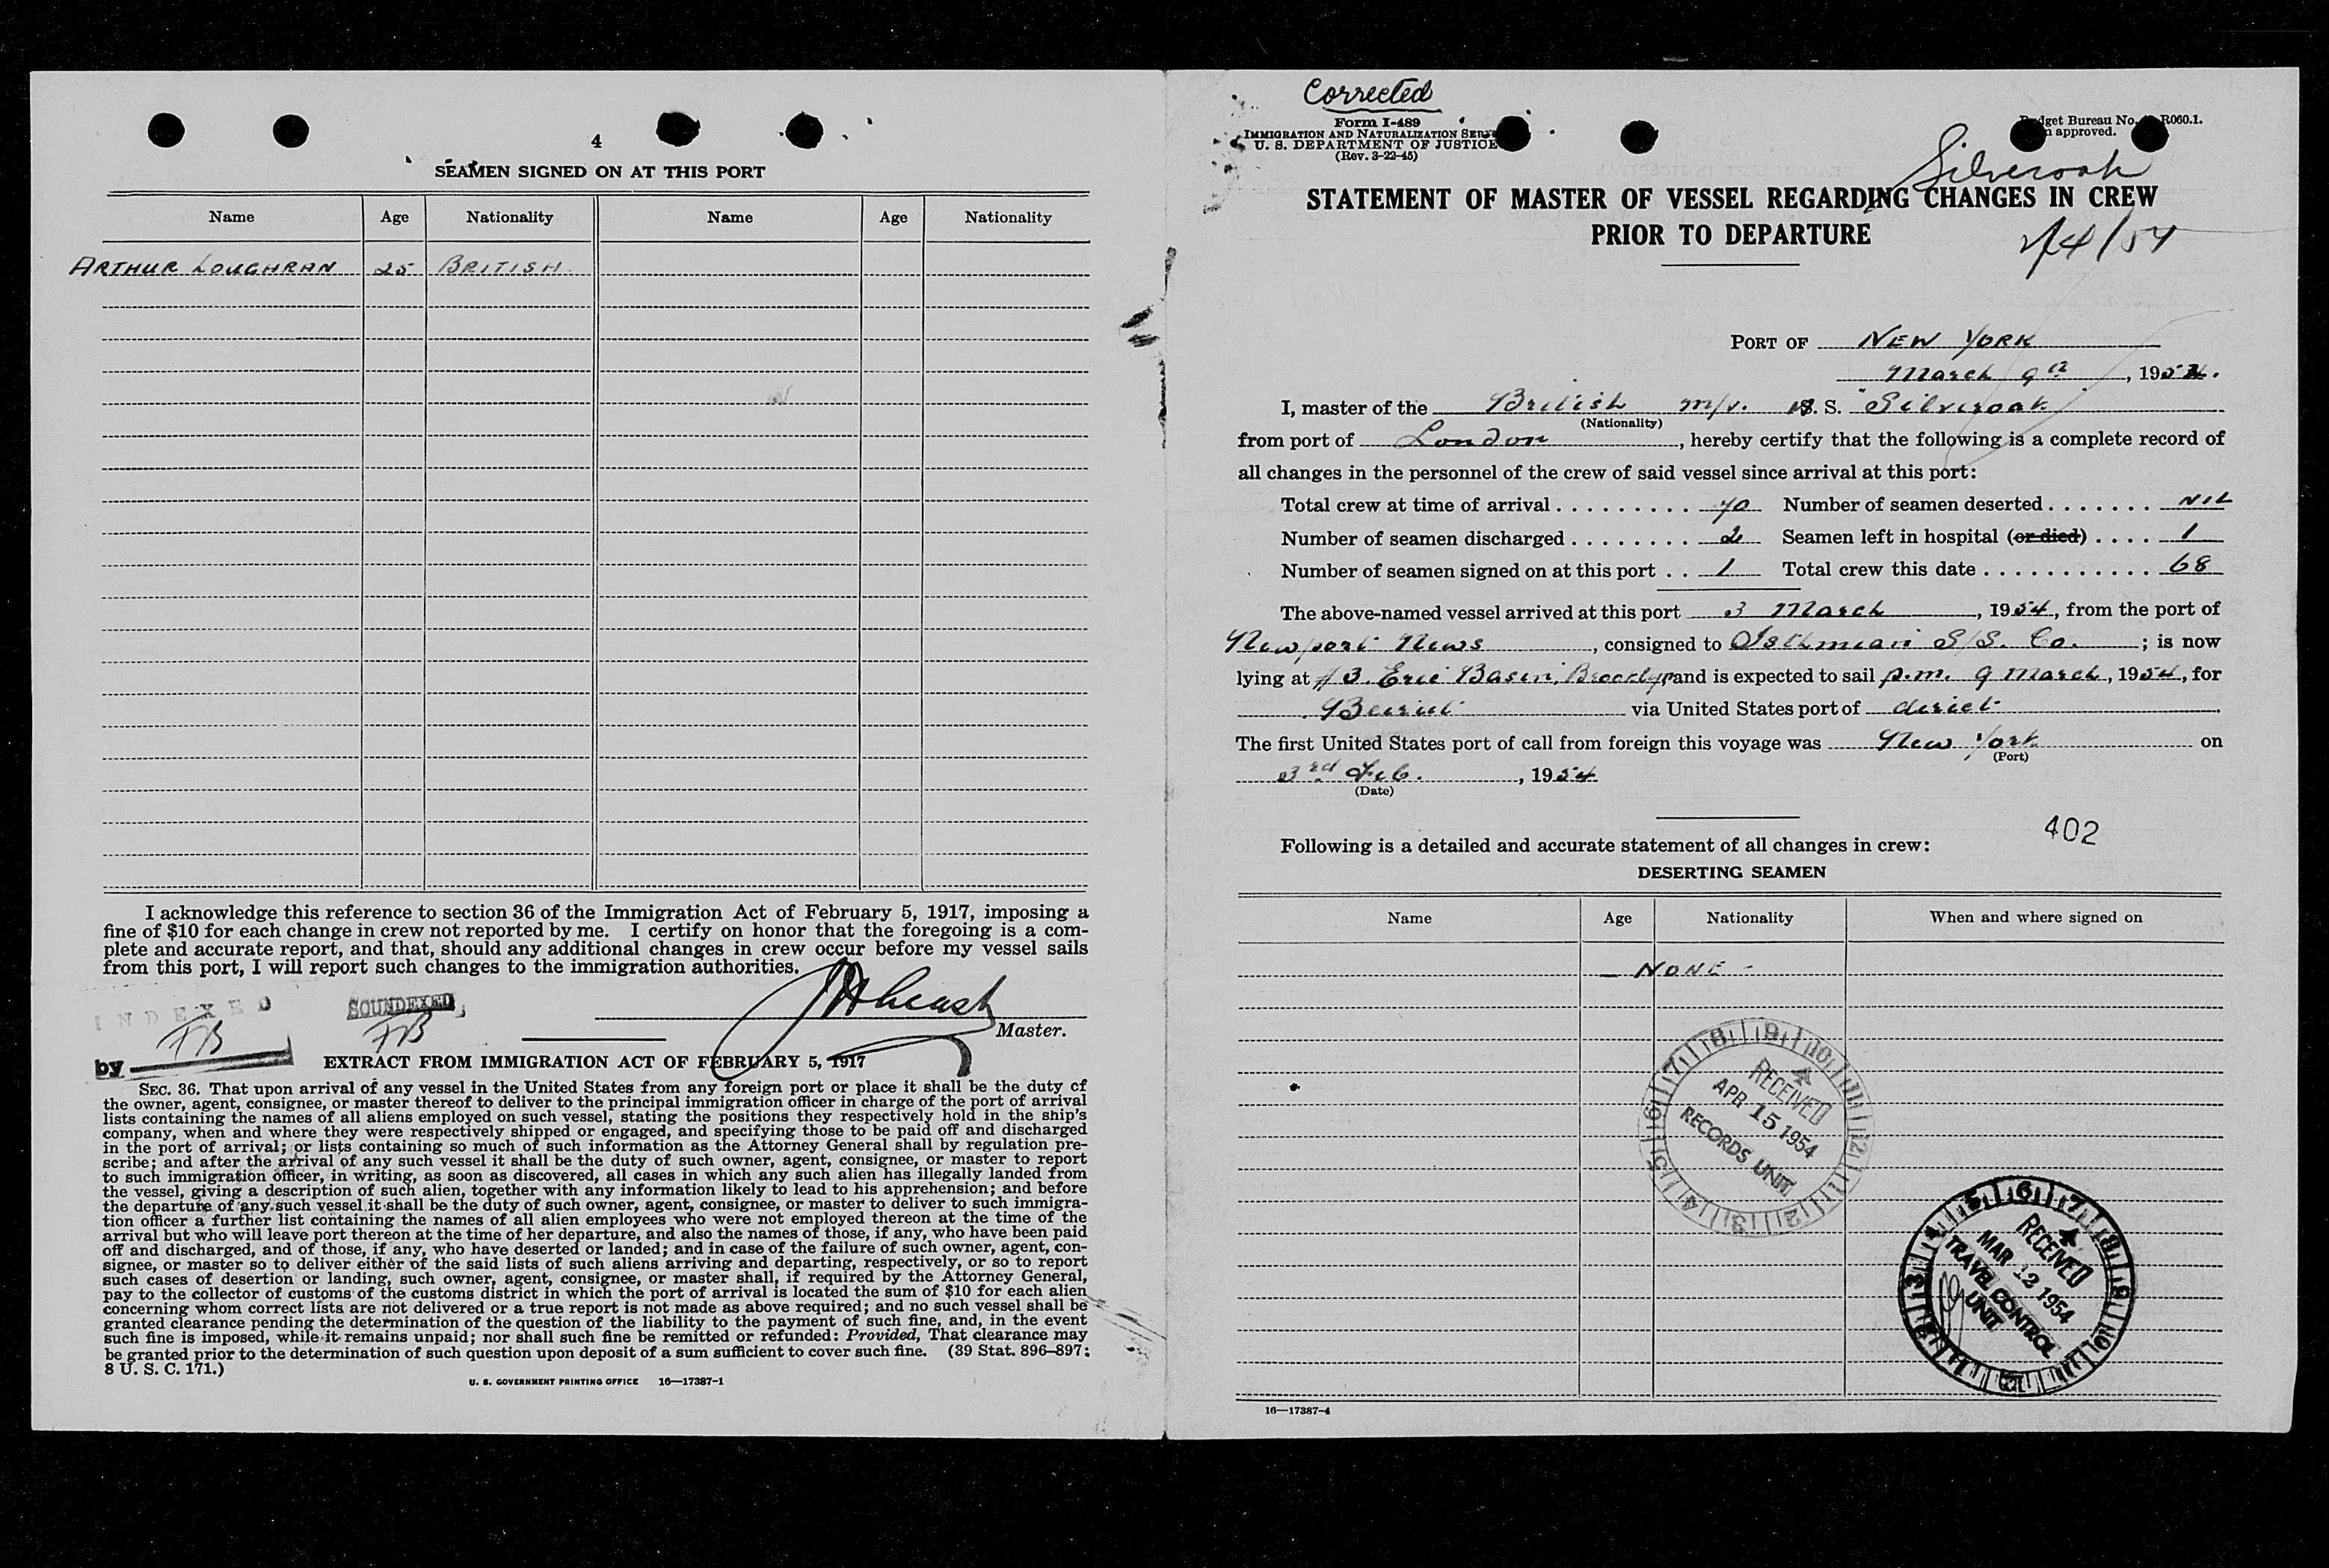 4
SEAMEN SIGNED ON AT THIS PORT
Name Age Nationality Name Age Nationality
ARTHUR LOUGHRAN 25 BRITISH
I acknowledge this reference to section 36 of the Immigration Act of February 5, 1917, imposing a
fine of $10 for each change in crew not reported by me. I certify on honor that the foregoing is a com-
plete and accurate report, and that, should any additional changes in crew occur before my vessel sails
from this port, I will report such changes to the immigration authorities.
INDEXED SOUNDEXED
Master.
by
EXTRACT FROM IMMIGRATION ACT OF FEBRUARY 5, 1917
SEC. 36. That upon arrival of any vessel in the United States from any foreign port or place it shall be the duty of
the owner, agent, consignee, or master thereof to deliver to the principal immigration officer in charge of the port of arrival
lists containing the names of all aliens employed on such vessel, stating the positions they respectively hold in the ship's
company, when and where they were respectively shipped or engaged, and specifying those to be paid off and discharged
in the port of arrival; or lists containing so much of such information as the Attorney General shall by regulation pre-
scribe; and after the arrival of any such vessel it shall be the duty of such owner, agent, consignee, or master to report
to such immigration officer, in writing, as soon as discovered, all cases in which any such alien has illegally landed from
the vessel, giving a description of such alien, together with any information likely to lead to his apprehension; and before
the departure of any such vessel it shall be the duty of such owner, agent, consignee, or master to deliver to such immigra-
tion officer a further list containing the names of all alien employees who were not employed thereon at the time of the
arrival but who will leave port thereon at the time of her departure, and also the names of those, if any, who have been paid
off and discharged, and of those, if any, who have deserted or landed; and in case of the failure of such owner, agent, con-
signee, or master so to deliver either of the said lists of such aliens arriving and departing, respectively, or so to report
such cases of desertion or landing, such owner, agent, consignee, or master shall, if required by the Attorney General,
pay to the collector of customs of the customs district in which the port of arrival is located the sum of $10 for each alien
concerning whom correct lists are not delivered or a true report is not made as above required; and no such vessel shall be
granted clearance pending the determination of the question of the liability to the payment of such fine, and, in the event
such fine is imposed, while it remains unpaid; nor shall such fine be remitted or refunded: Provided, That clearance may
be granted prior to the determination of such question upon deposit of a sum sufficient to cover such fine. (39 Stat. 896–897;
8 U. S. C. 171.)
U. S. GOVERNMENT PRINTING OFFICE 16—17387-1
Corrected
Form I-489
IMMIGRATION AND NATURALIZATION
U. S. DEPARTMENT OF JUSTICE
(Rev. 3-22-45)
Bureau No. R060.1.
approved.
Silveroak
STATEMENT OF MASTER OF VESSEL REGARDING CHANGES IN CREW
PRIOR TO DEPARTURE
PORT OF NEW YORK
March 9th, 1954.
I, master of the British m/v. S. S. "Silveroak
(Nationality)
from port of London, hereby certify that the following is a complete record of
all changes in the personnel of the crew of said vessel since arrival at this port:
Total crew at time of arrival . . . . . . . . . 70 Number of seamen deserted . . . . . . . NIL
Number of seamen discharged . . . . . . . . 2 Seamen left in hospital (or died) . . . . 1
Number of seamen signed on at this port . . 1 Total crew this date . . . . . . . . . . . 68
The above-named vessel arrived at this port 3 March, 1954, from the port of
Newport News, consigned to Isthmian S/S. Co.; is now
lying at # 3. Erie Basin, Brooklyn and is expected to sail p.m. 9 March, 1954, for
Beirut via United States port of direct
The first United States port of call from foreign this voyage was New York on
(Port)
3rd Feb., 1954
(Date)
402
Following is a detailed and accurate statement of all changes in crew:
DESERTING SEAMEN
Name Age Nationality When and where signed on
— NONE -
RECEIVED
APR 15 1954
RECORDS UNIT
RECEIVED
MAR 12 1954
TRAVEL CONTROL
UNIT
16—17387-4